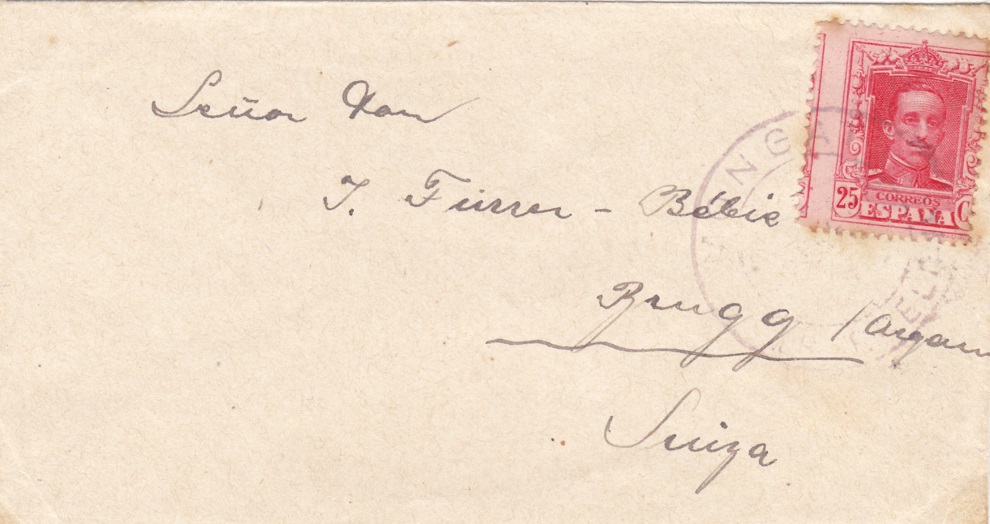 Señor
J. Furrer - Bébié
Brugg (Argau
Suiza
25
CORREOS
ESPAÑA C